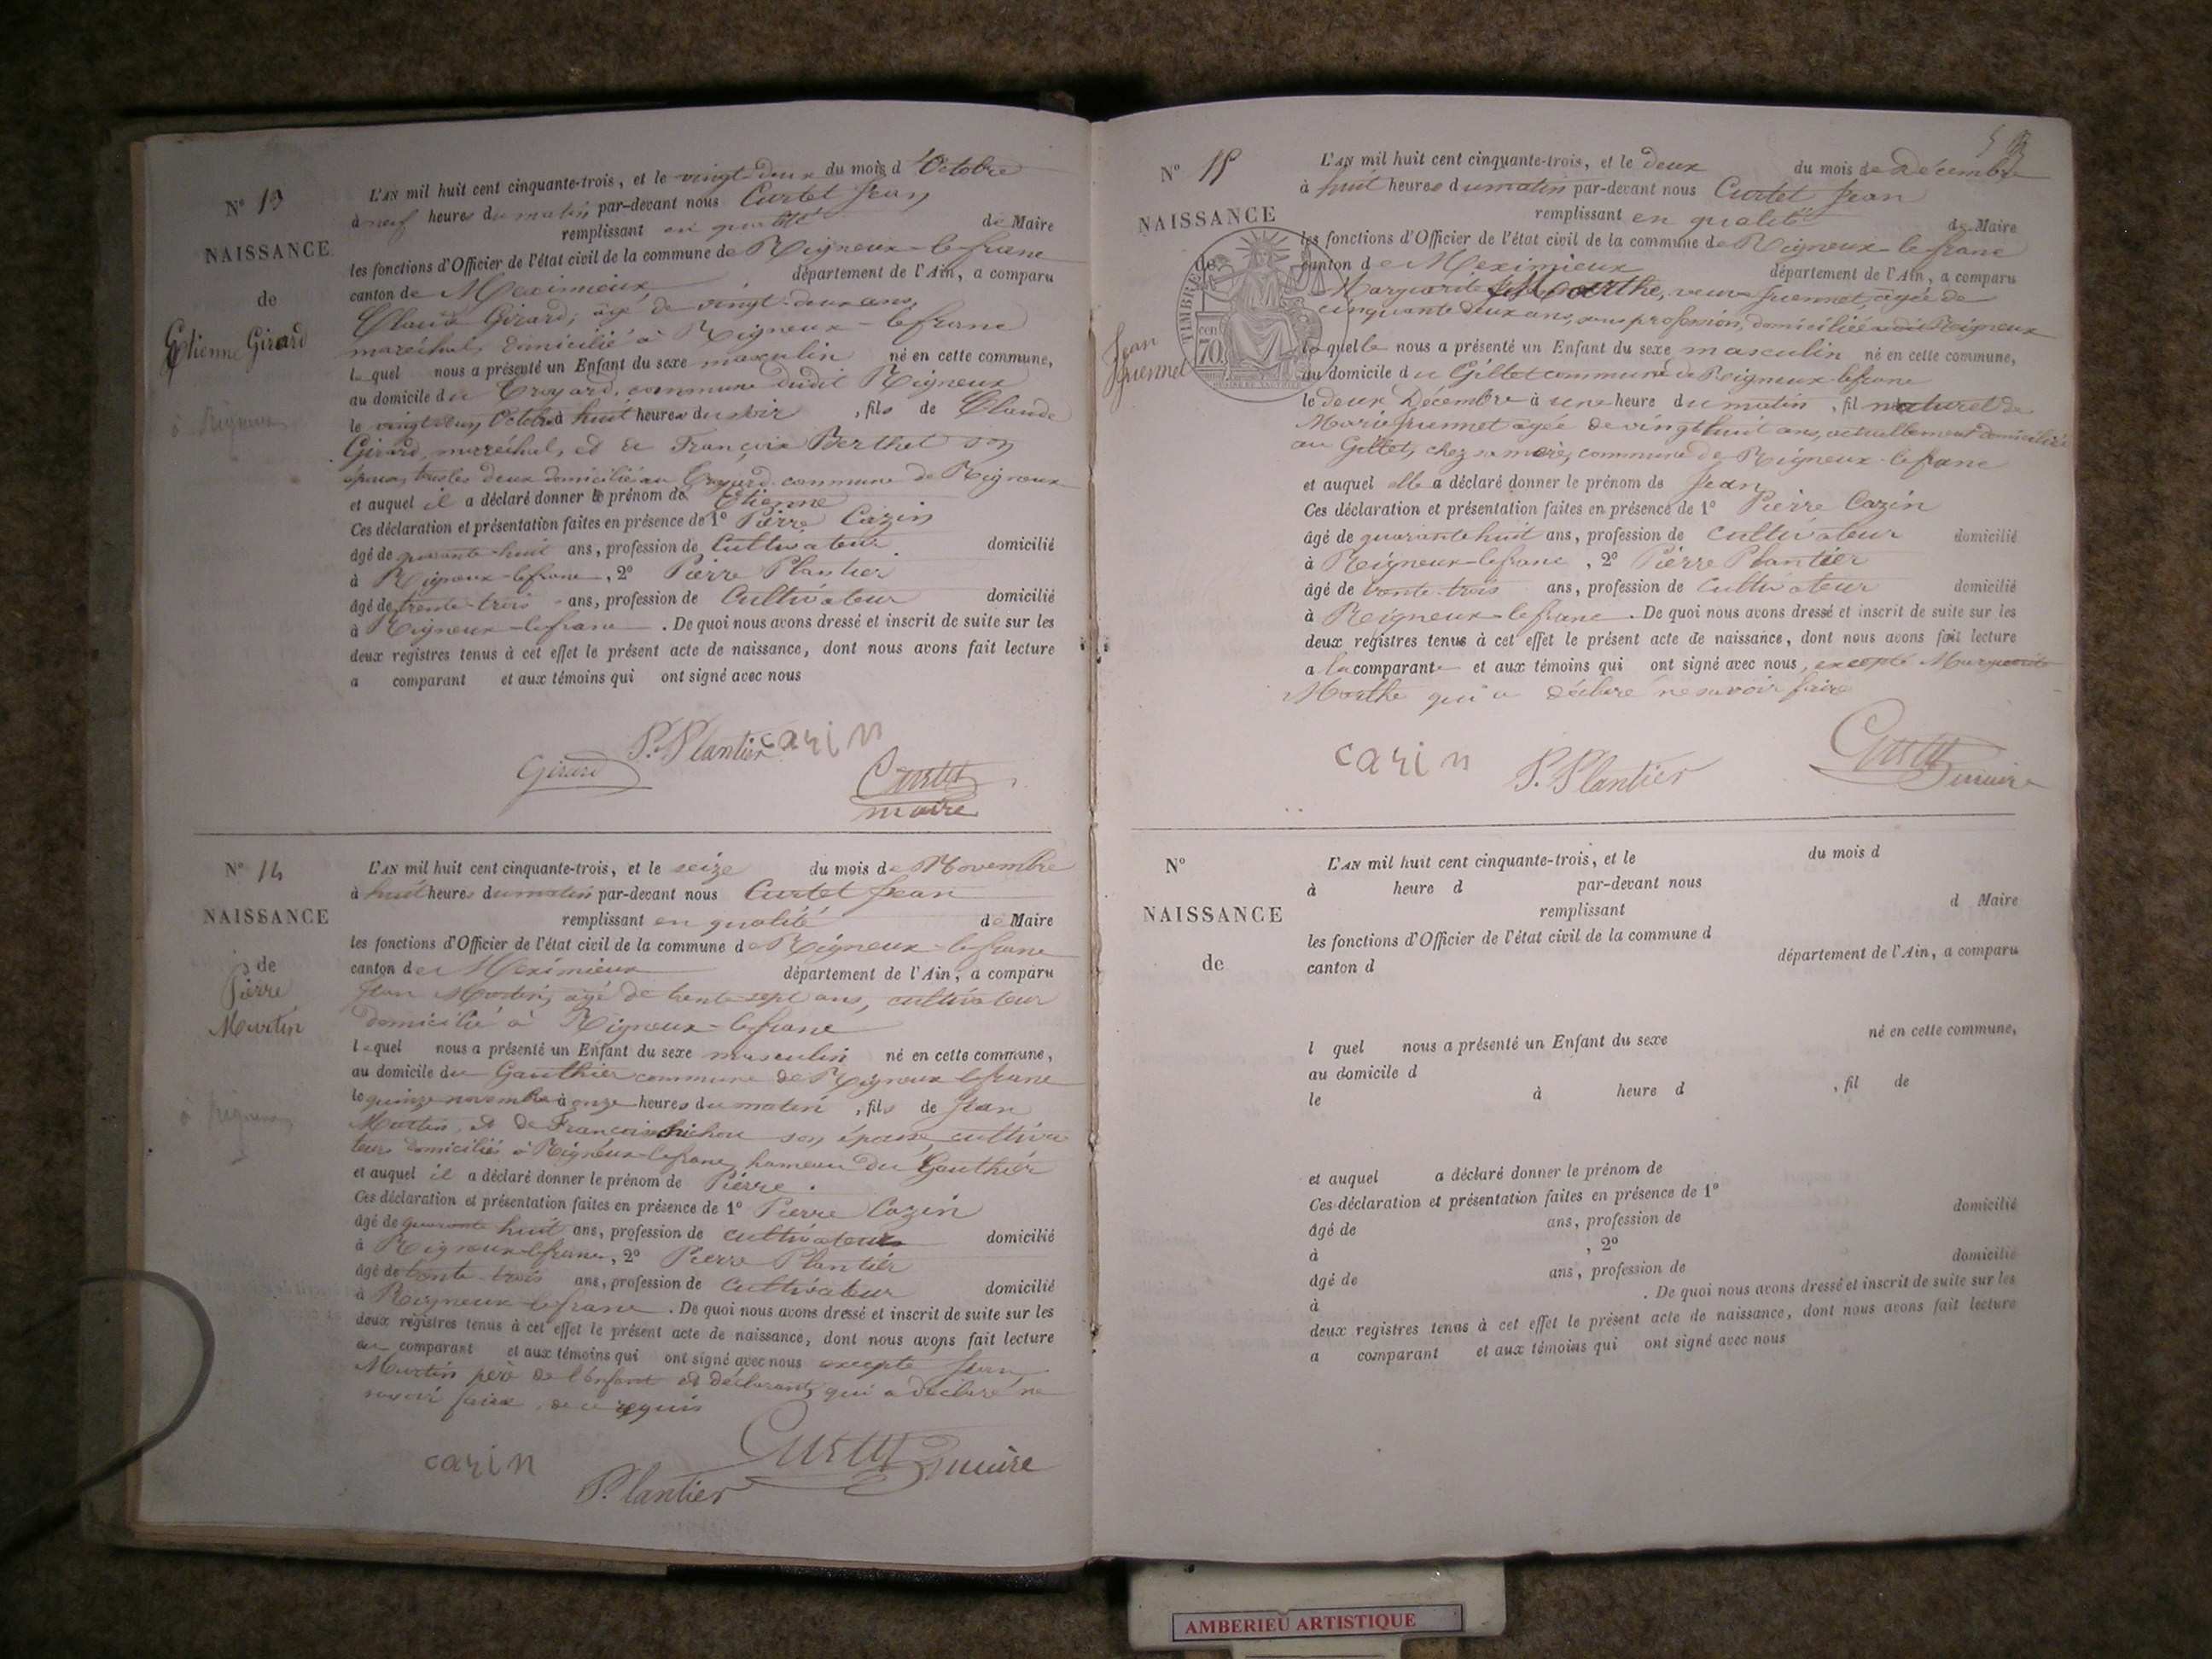 N° 13
NAISSANCE
de
Etienne Girard
à Rigneux
L'AN mil huit cent cinquante-trois, et le vingt-deux du mois d'Octobre
à neuf heures du matin par-devant nous Curtet Jean
remplissant en qualité de Maire
les fonctions d'Officier de l'état civil de la commune de Rigneux-le-franc
canton de Meximieux département de l'Ain, a comparu
Claude Girard, âgé de vingt-deux ans,
maréchal, domicilié à Rigneux-le franc
lequel nous a présenté un Enfant du sexe masculin né en cette commune,
au domicile du Croyard, commune dudit Rigneux
le vingt un Octobre à huit heures du soir, fils de Claude
Girard, maréchal, et de Françoise Berthet son
épouse, tous les deux domiciliés au Croyard commune de Rigneux
et auquel il a déclaré donner le prénom de Etienne
Ces déclaration et présentation faites en présence de 1° Pierre Cazin
âgé de quarante-huit ans, profession de Cultivateur domicilié
à Rigneux-le franc, 2° Pierre Plantier
âgé de trente-trois ans, profession de Cultivateur domicilié
à Rigneux-le franc. De quoi nous avons dressé et inscrit de suite sur les
deux registres tenus à cet effet le présent acte de naissance, dont nous avons fait lecture
a comparant et aux témoins qui ont signé avec nous
P. Plantier cazin
Girard Curtet
maire
N° 14
NAISSANCE
de
Pierre
Martin
à Rigneux
L'AN mil huit cent cinquante-trois, et le seize du mois de Novembre
à huit heures du matin par-devant nous Curtet Jean
remplissant en qualité de Maire
les fonctions d'Officier de l'état civil de la commune de Rigneux-le franc
canton de Meximieux département de l'Ain, a comparu
Jean Martin, âgé de trente-sept ans, cultivateur
domicilié à Rigneux-le franc
lequel nous a présenté un Enfant du sexe masculin né en cette commune,
au domicile du Gauthier commune de Rigneux-le franc
le quinze novembre à onze heures du matin, fils de Jean
Martin, et de Françoise son épouse, cultiva
teurs domiciliés à Rigneux-le franc, hameau du Gauthier
et auquel il a déclaré donner le prénom de Pierre.
Ces déclaration et présentation faites en présence de 1° Pierre Cazin
âgé de quarante huit ans, profession de cultivateur domicilié
à Rigneux-le franc, 2° Pierre Plantier
âgé de trente-trois ans, profession de Cultivateur domicilié
à Rigneux-le franc. De quoi nous avons dressé et inscrit de suite sur les
deux registres tenus à cet effet le présent acte de naissance, dont nous avons fait lecture
au comparant et aux témoins qui ont signé avec nous excepté Jean
Martin père de l'enfant et déclarant, qui a déclaré ne
savoir faire, de ce requis
cazin Curtet maire
P. Plantier
N° 15
NAISSANCE
de
Jean
Guennet
TIMBRE
70 cen
L'AN mil huit cent cinquante-trois, et le deux du mois de Décembre
à huit heures du matin par-devant nous Curtet Jean
remplissant en qualité de Maire
les fonctions d'Officier de l'état civil de la commune de Rigneux-le franc
canton de Meximieux département de l'Ain, a comparu
Marguerite Marthe, veuve Guennet, âgée de
cinquante deux ans, sans profession, domiciliée audit Rigneux
laquelle nous a présenté un Enfant du sexe masculin né en cette commune,
au domicile du Gillet commune de Rigneux-le franc
le deux Décembre à une heure du matin, fil naturel de
Marie Guennet âgée de vingt huit ans, actuellement domiciliée
au Gillet, chez sa mère, commune de Rigneux-le franc
et auquel elle a déclaré donner le prénom de Jean
Ces déclaration et présentation faites en présence de 1° Pierre Cazin
âgé de quarante huit ans, profession de cultivateur domicilié
à Rigneux-le franc, 2° Pierre Plantier
âgé de trente-trois ans, profession de Cultivateur domicilié
à Rigneux-le franc. De quoi nous avons dressé et inscrit de suite sur les
deux registres tenus à cet effet le présent acte de naissance, dont nous avons fait lecture
a la comparante et aux témoins qui ont signé avec nous, excepté Marguerite
Marthe qui a déclaré ne savoir faire
cazin P. Plantier Curtet maire
N°
NAISSANCE
de
L'AN mil huit cent cinquante-trois, et le du mois d
à heure d par-devant nous
remplissant d Maire
les fonctions d'Officier de l'état civil de la commune d
canton d département de l'Ain, a comparu
l quel nous a présenté un Enfant du sexe né en cette commune,
au domicile d
le à heure d , fil de
et auquel a déclaré donner le prénom de
Ces déclaration et présentation faites en présence de 1°
âgé de ans, profession de domicilié
à , 2°
âgé de ans, profession de domicilié
à . De quoi nous avons dressé et inscrit de suite sur les
deux registres tenus à cet effet le présent acte de naissance, dont nous avons fait lecture
a comparant et aux témoins qui ont signé avec nous
AMBERIEU ARTISTIQUE